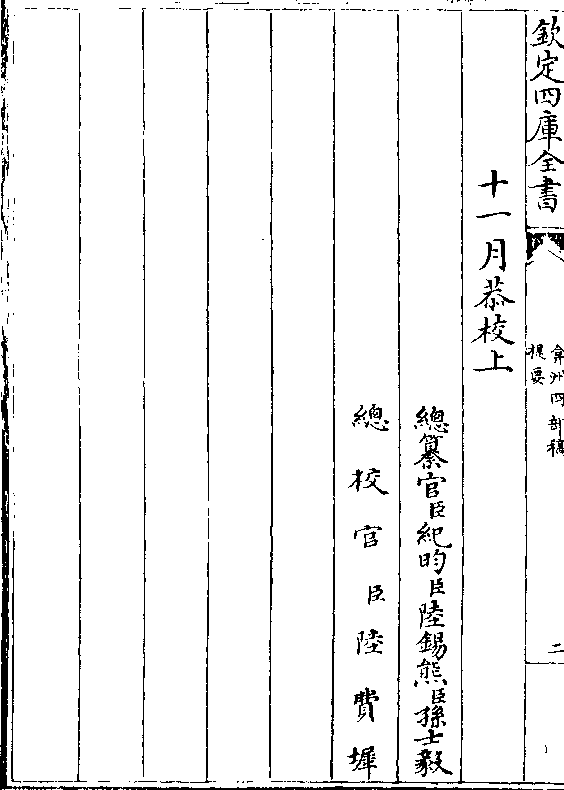 欽定四庫全書
弇州四部稿
提要
二
十一月恭校上
總纂官臣紀昀臣陸錫熊臣孫士毅
總校官臣陸費墀